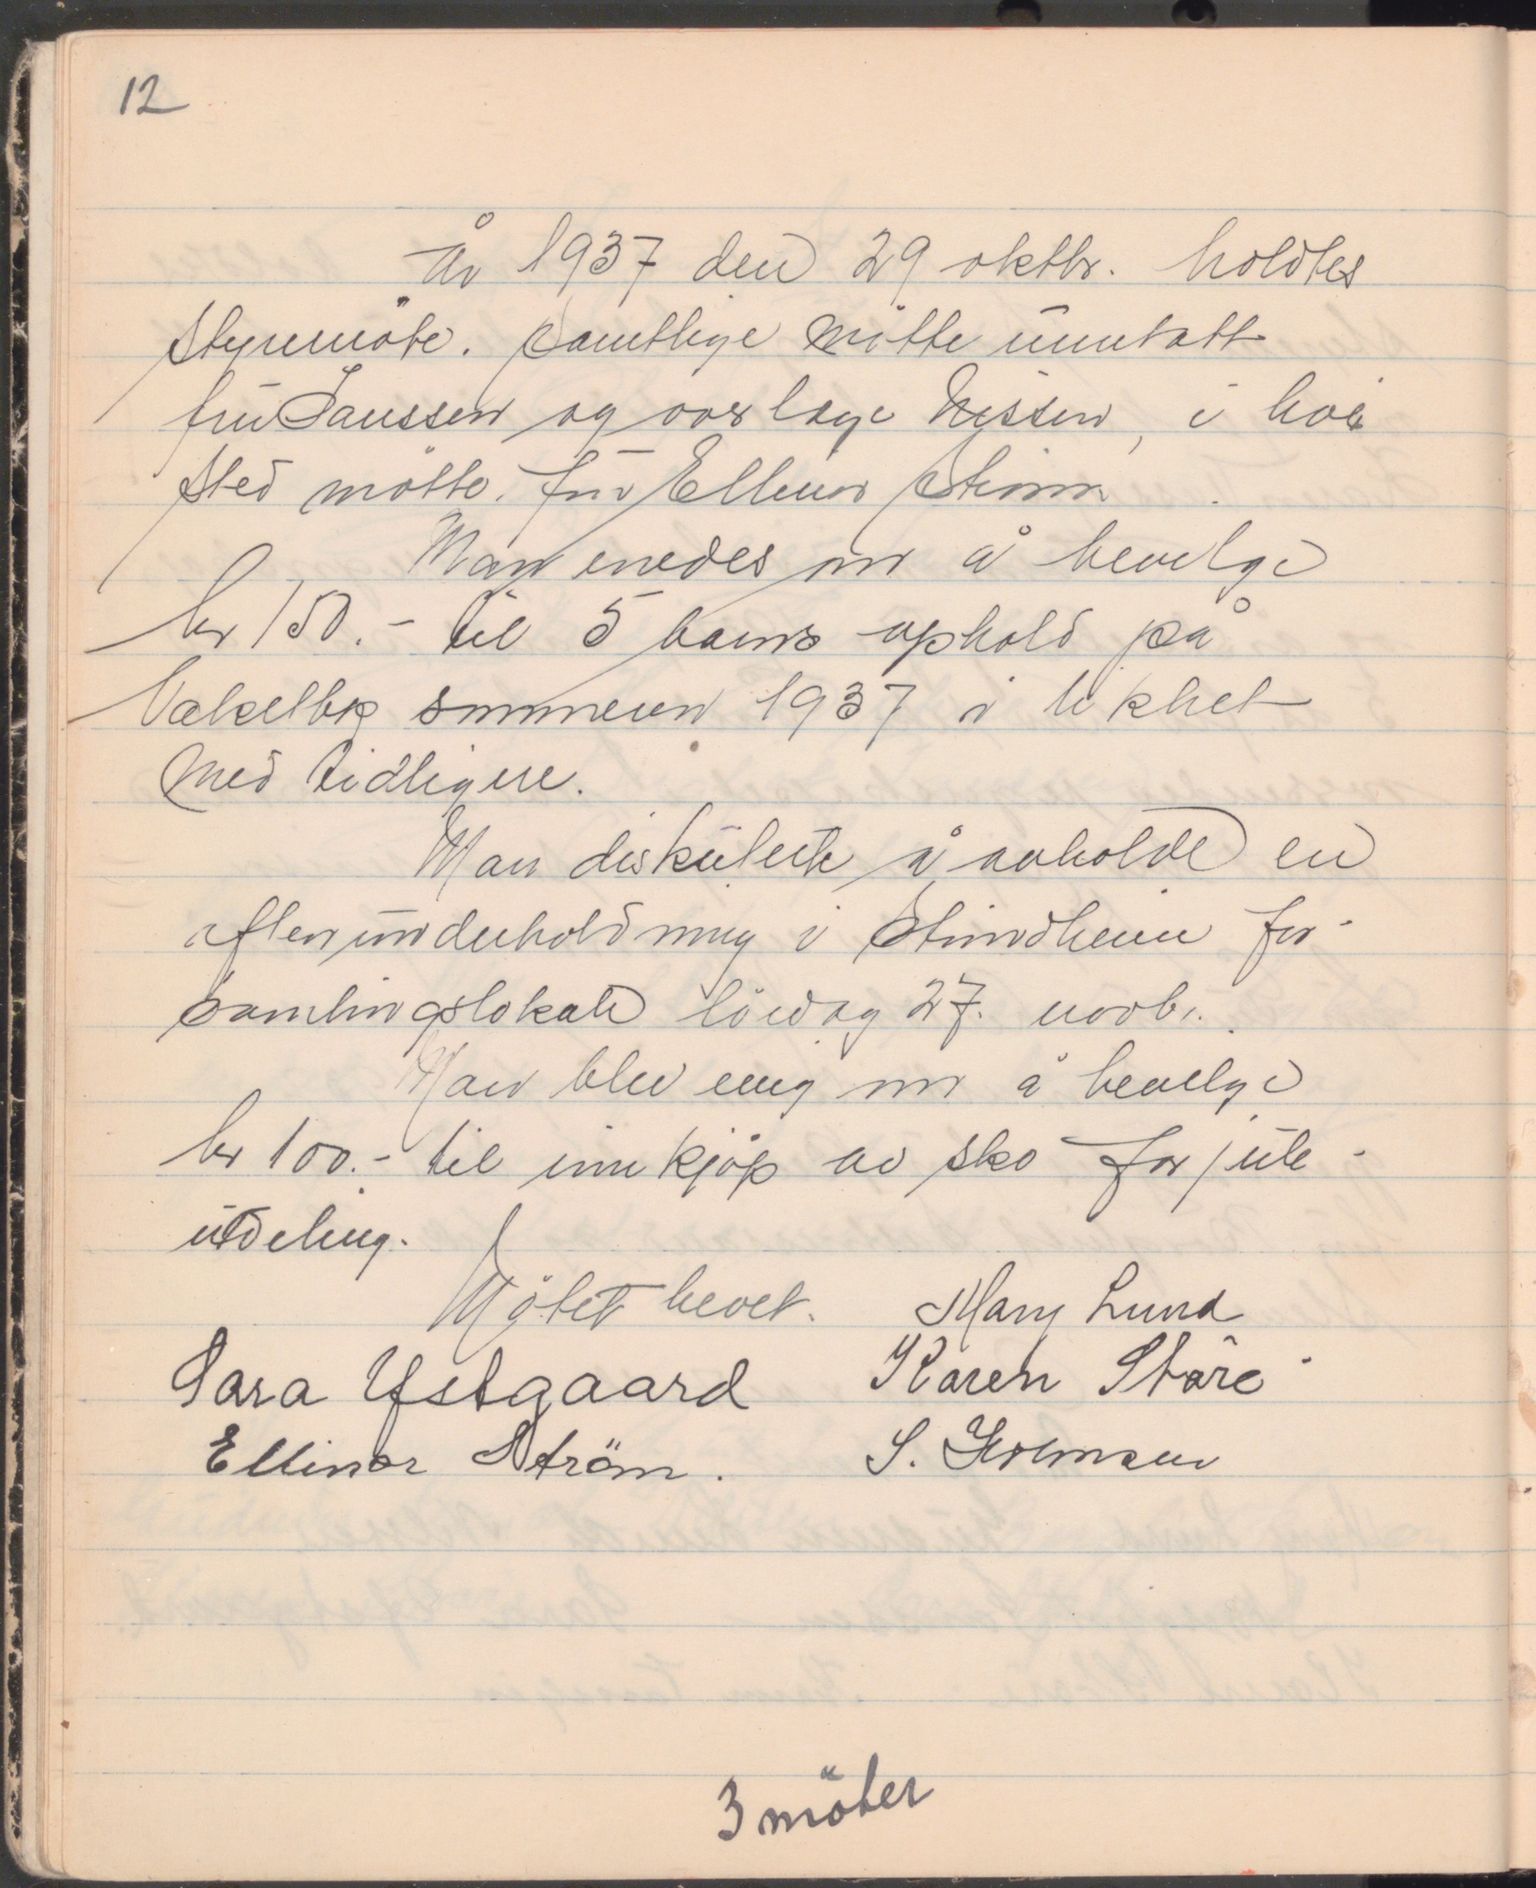 12
År 1937 den 29 oktbr. holdtes
styremöte. Samtlige mötte unntatt
fru Janssen og overlæge Nissen, i hvis
sted mötte fru Ellinor Ström
Man enedes om å bevilge
kr 150.- til 5 barns ophold på
Vækelbø sommeren 1937 i likhet
med tidligere.
Man diskuterte å avholde en
aftenunderholdning i Strindheim for-
samlingslokale lördag 27. novbr.
Man blev enig om å bevilge
kr 100.- til innkjøp av sko for jule-
utdeling.
Mötet hevet. Mary Lund
Sara Ystgaard Karen Störe
Ellinor Ström. S. Holmsen
3 möter